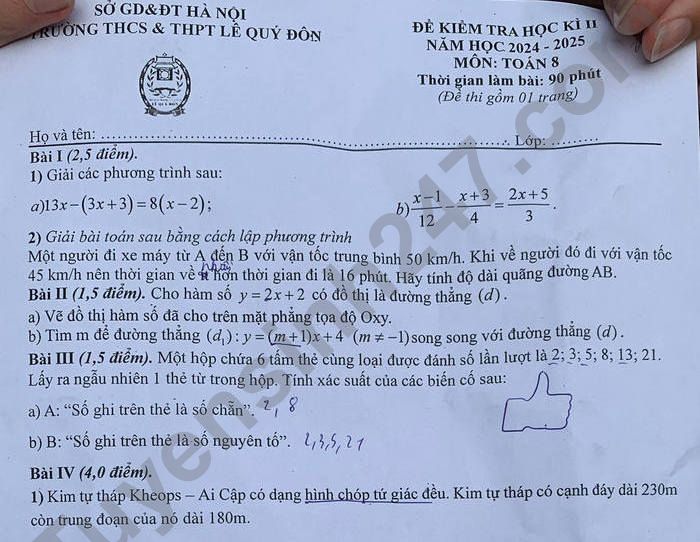 SỞ GD&ĐT HÀ NỘI
TRƯỜNG THCS & THPT LÊ QUÝ ĐÔN
ĐỀ KIỂM TRA HỌC KÌ II
NĂM HỌC 2024 - 2025
MÔN: TOÁN 8
Thời gian làm bài: 90 phút
(Đề thi gồm 01 trang)
Họ và tên: ........................................ Lớp: .........
Bài I (2,5 điểm).
1) Giải các phương trình sau:
a)13x−(3x+3)=8(x−2);
b) (x−1)/12 − (x+3)/4 = (2x+5)/3 .
2) Giải bài toán sau bằng cách lập phương trình
Một người đi xe máy từ A đến B với vận tốc trung bình 50 km/h. Khi về người đó đi với vận tốc
45 km/h nên thời gian về nhiều hơn thời gian đi là 16 phút. Hãy tính độ dài quãng đường AB.
Bài II (1,5 điểm). Cho hàm số y=2x+2 có đồ thị là đường thẳng (d).
a) Vẽ đồ thị hàm số đã cho trên mặt phẳng tọa độ Oxy.
b) Tìm m để đường thẳng (d₁): y=(m+1)x+4 (m≠−1) song song với đường thẳng (d).
Bài III (1,5 điểm). Một hộp chứa 6 tấm thẻ cùng loại được đánh số lần lượt là 2; 3; 5; 8; 13; 21.
Lấy ra ngẫu nhiên 1 thẻ từ trong hộp. Tính xác suất của các biến cố sau:
a) A: “Số ghi trên thẻ là số chẵn”. 2, 8
b) B: “Số ghi trên thẻ là số nguyên tố”. 2,3,5,21
Bài IV (4,0 điểm).
1) Kim tự tháp Kheops – Ai Cập có dạng hình chóp tứ giác đều. Kim tự tháp có cạnh đáy dài 230m
còn trung đoạn của nó dài 180m.
Tuyensinh247.com